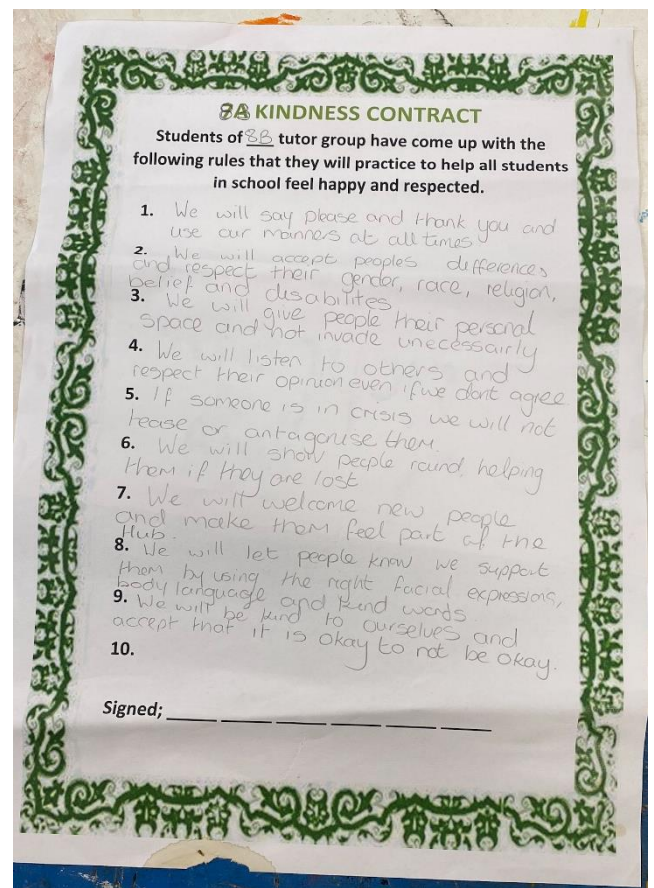 8A KINDNESS CONTRACT
Students of 8B tutor group have come up with the
following rules that they will practice to help all students
in school feel happy and respected.
1. We will say please and thank you and
use our manners at all times
2. We will accept peoples differences
and respect their gender, race, religion,
belief and disabilites
3. We will give people their personal
space and not invade unecessairly
4. We will listen to others and
respect their opinion even if we dont agree.
5. If someone is in crisis we will not
tease or antagonise them.
6. We will show people round helping
them if they are lost
7. We will welcome new people
and make them feel part of the
Hub.
8. We will let people know we support
them by using the right facial expressions,
body language and kind words
9. We will be kind to ourselves and
accept that it is okay to not be okay.
10.
Signed;